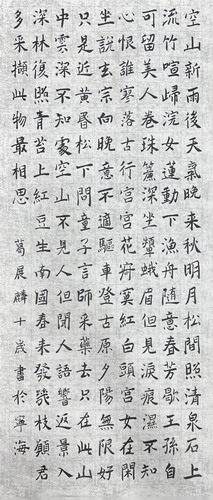 空山新雨後天氣晚來秋明月松間照清泉石上
流竹喧歸浣女蓮動下漁舟隨意春芳歇王孫自
可留美人卷珠簾深坐顰蛾眉但見淚痕濕不知
心恨誰寥落古行宮宮花寂寞紅白頭宮女在閑
坐說玄宗向晚意不適驅車登古原夕陽無限好
只是近黃昏松下問童子言師采藥去只在此山
中雲深不知處空山不見人但聞人語響返景入
深林復照青苔上紅豆生南國春來發幾枝願君
多采擷此物最相思 葛展麟十歲書於寧海